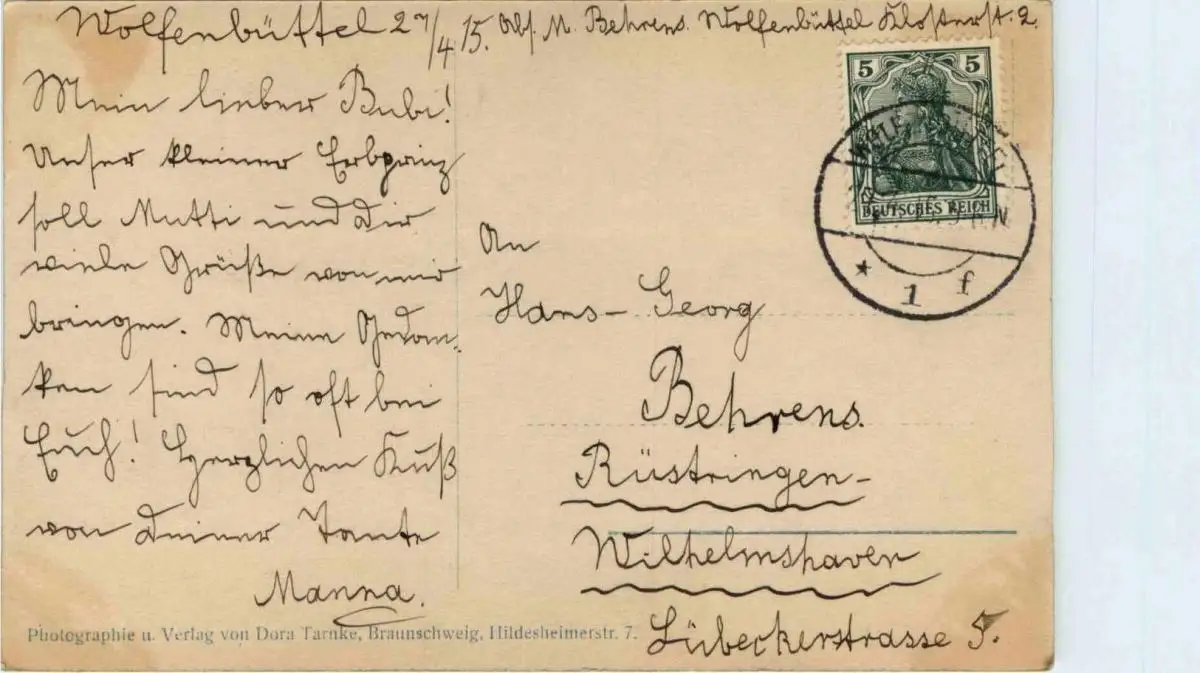 Wolfenbüttel 27/4 15. Abs. M. Behrens. Wolfenbüttel Klosterst. 2.
Mein lieber Bubi!
Unser kleiner Erbprinz
soll Mutti und Dir
viele Grüße von mir
bringen. Meine Gedan-
ken sind so oft bei
Euch! Herzlichen Kuß
von Deiner Tante
Manna.
5 5
DEUTSCHES REICH
* 1 f
An
Hans-Georg
Behrens.
Rüstringen-
Wilhelmshaven
Lübeckerstrasse 5.
Photographie u. Verlag von Dora Tarnke, Braunschweig, Hildesheimerstr. 7.